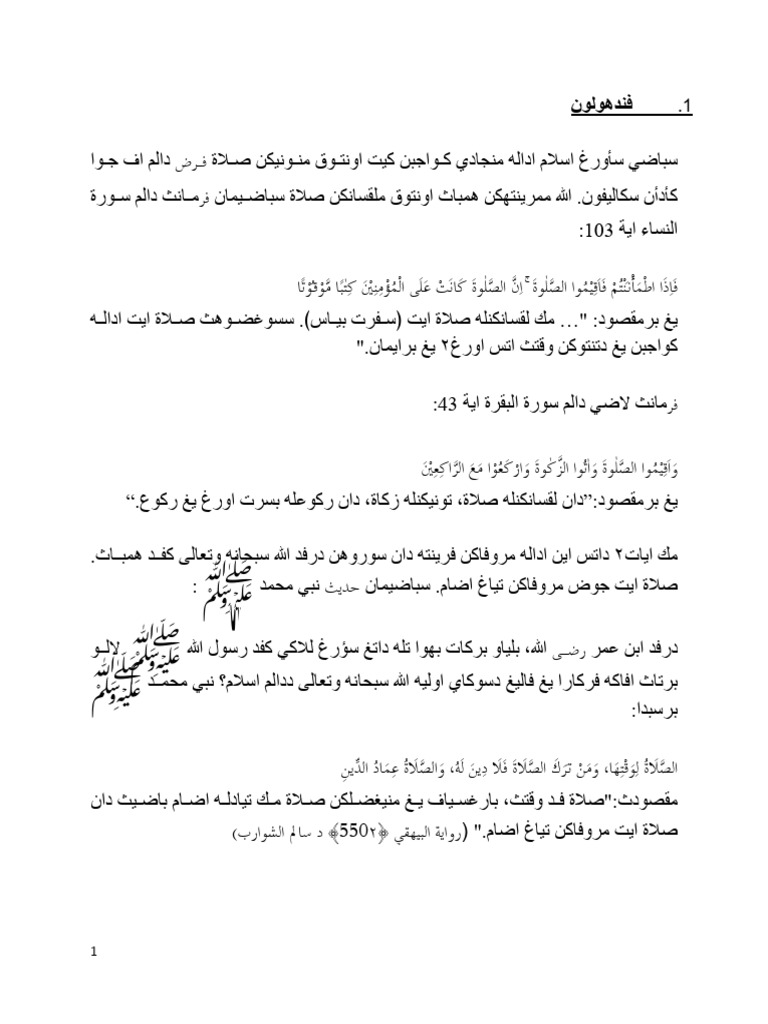 1. فندهولون
سباضي سأورغ اسلام اداله منجادي كواجبن كيت اونتوق منونيكن صلاة فرض دالم اف جوا
كأدأن سكاليفون. الله ممرينتهكن همباث اونتوق ملقسانكن صلاة سباضيمان فرمانث دالم سورة
النساء اية 103:
فَاِذَا اطْمَأْنَنْتُمْ فَاَقِيْمُوا الصَّلٰوةَ ۚ اِنَّ الصَّلٰوةَ كَانَتْ عَلَى الْمُؤْمِنِيْنَ كِتٰبًا مَّوْقُوْتًا
يغ برمقصود: "… مك لقسانكنله صلاة ايت (سفرت بياس). سسوغضوهث صلاة ايت اداله
كواجبن يغ دتنتوكن وقتث اتس اورغ٢ يغ برايمان."
فرمانث لاضي دالم سورة البقرة اية 43:
وَاَقِيْمُوا الصَّلٰوةَ وَاٰتُوا الزَّكٰوةَ وَارْكَعُوْا مَعَ الرَّاكِعِيْنَ
يغ برمقصود:”دان لقسانكنله صلاة، تونيكنله زكاة، دان ركوعله بسرت اورغ يغ ركوع.“
مك ايات٢ داتس اين اداله مروفاكن فرينته دان سوروهن درفد الله سبحانه وتعالى كفد همباث.
صلاة ايت جوض مروفاكن تياغ اضام. سباضيمان حديث نبي محمد ﷺ :
درفد ابن عمر رضى الله، بلياو بركات بهوا تله داتغ سؤرغ للاكي كفد رسول الله ﷺ لالو
برتاث افاكه فركارا يغ فاليغ دسوكاي اوليه الله سبحانه وتعالى ددالم اسلام؟ نبي محمد ﷺ
برسبدا:
الصَّلَاةُ لِوَقْتِهَا، وَمَنْ تَرَكَ الصَّلَاةَ فَلَا دِينَ لَهُ، وَالصَّلَاةُ عِمَادُ الدِّينِ
مقصودث:"صلاة فد وقتث، بارغسياف يغ منيغضلكن صلاة مك تيادله اضام باضيث دان
صلاة ايت مروفاكن تياغ اضام." (رواية البيهقي ﴿550٢﴾ د سالم الشوارب)
1